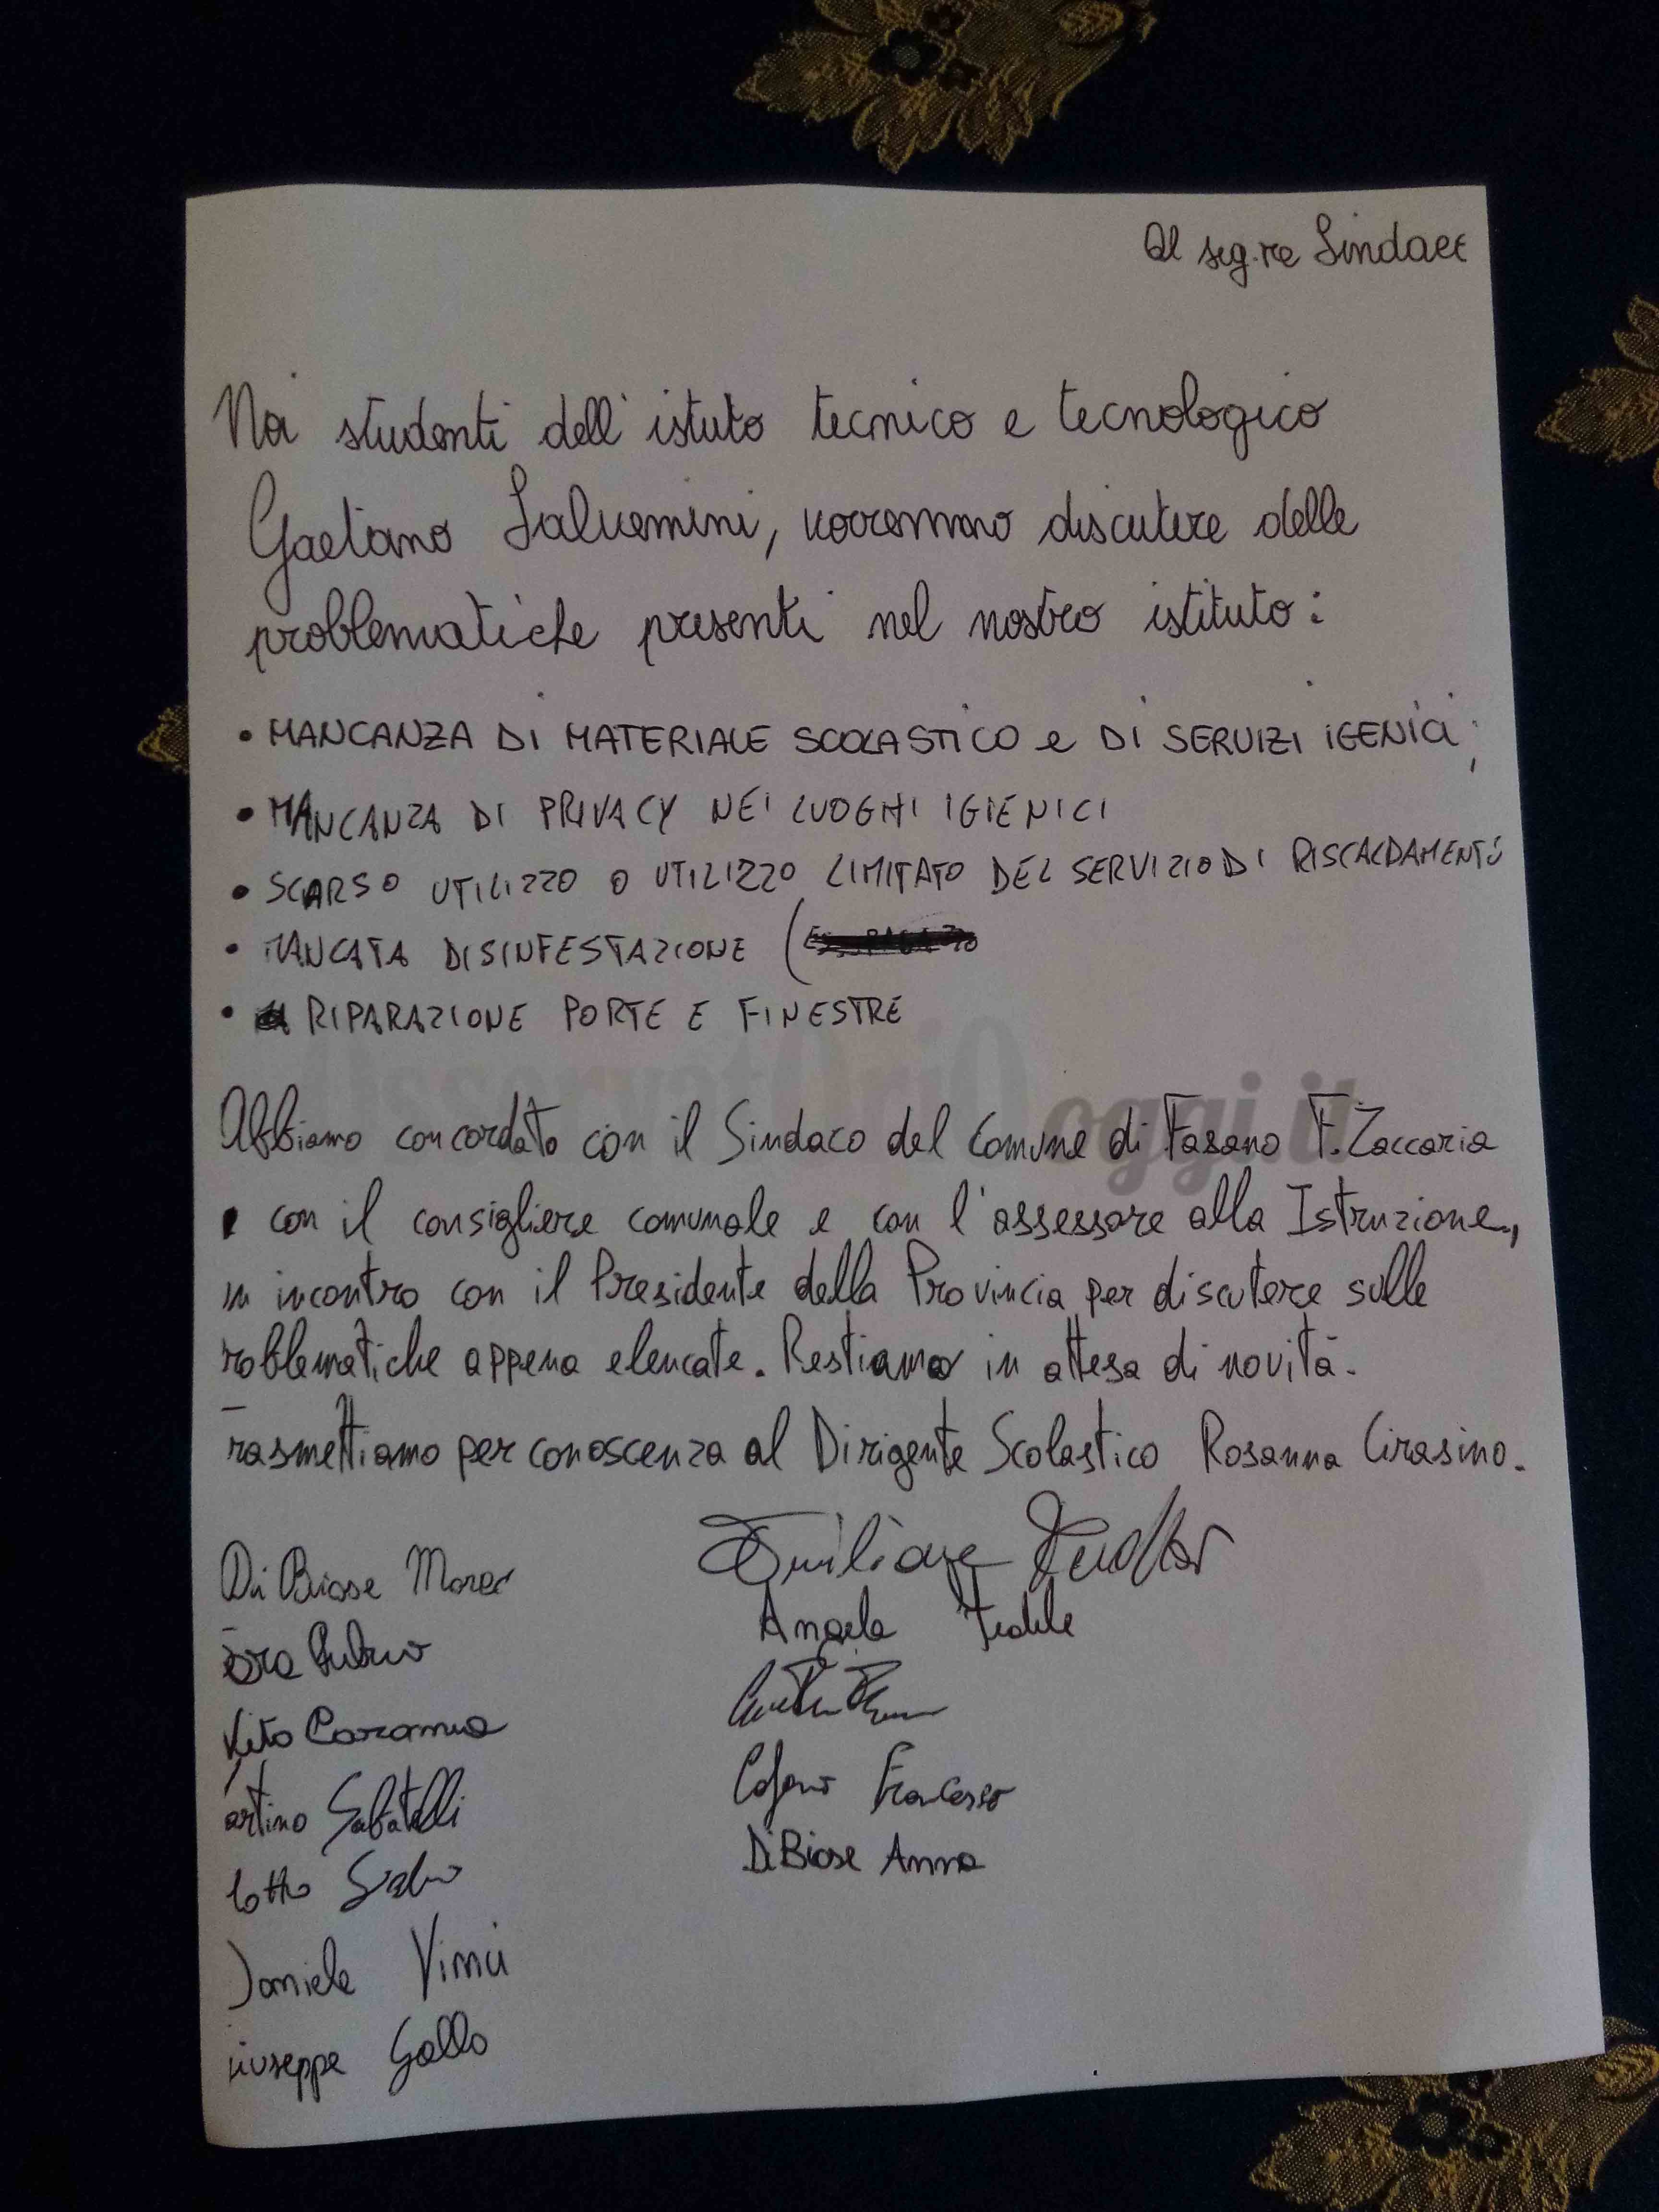 Al sig.re Sindac
Noi studenti dell'istuto tecnico e tecnologico
Gaetano Salvemini, vorremmo discutere delle
problematiche presenti nel nostro istituto:
• MANCANZA DI MATERIALE SCOLASTICO e DI SERVIZI IGENICI;
• MANCANZA DI PRIVACY NEI LUOGHI IGIENICI
• SCARSO UTILIZZO O UTILIZZO LIMITATO DEL SERVIZIO DI RISCALDAMENTO
• MANCATA DISINFESTAZIONE (
• RIPARAZIONE PORTE E FINESTRE
OsservatOriOoggi.it
Abbiamo concordato con il Sindaco del Comune di Fasano F. Zaccaria
con il consigliere comunale e con l'assessore alla Istruzione,
un incontro con il Presidente della Provincia per discutere sulle
roblematiche appena elencate. Restiamo in attesa di novità.
rasmettiamo per conoscenza al Dirigente Scolastico Rosanna Cirasino.
Di Biase Marco
Angela Fedele
Vito Caramia
artino Sabatelli
Cofano Francesco
Di Biase Anna
Daniele Vinci
iuseppe Gallo